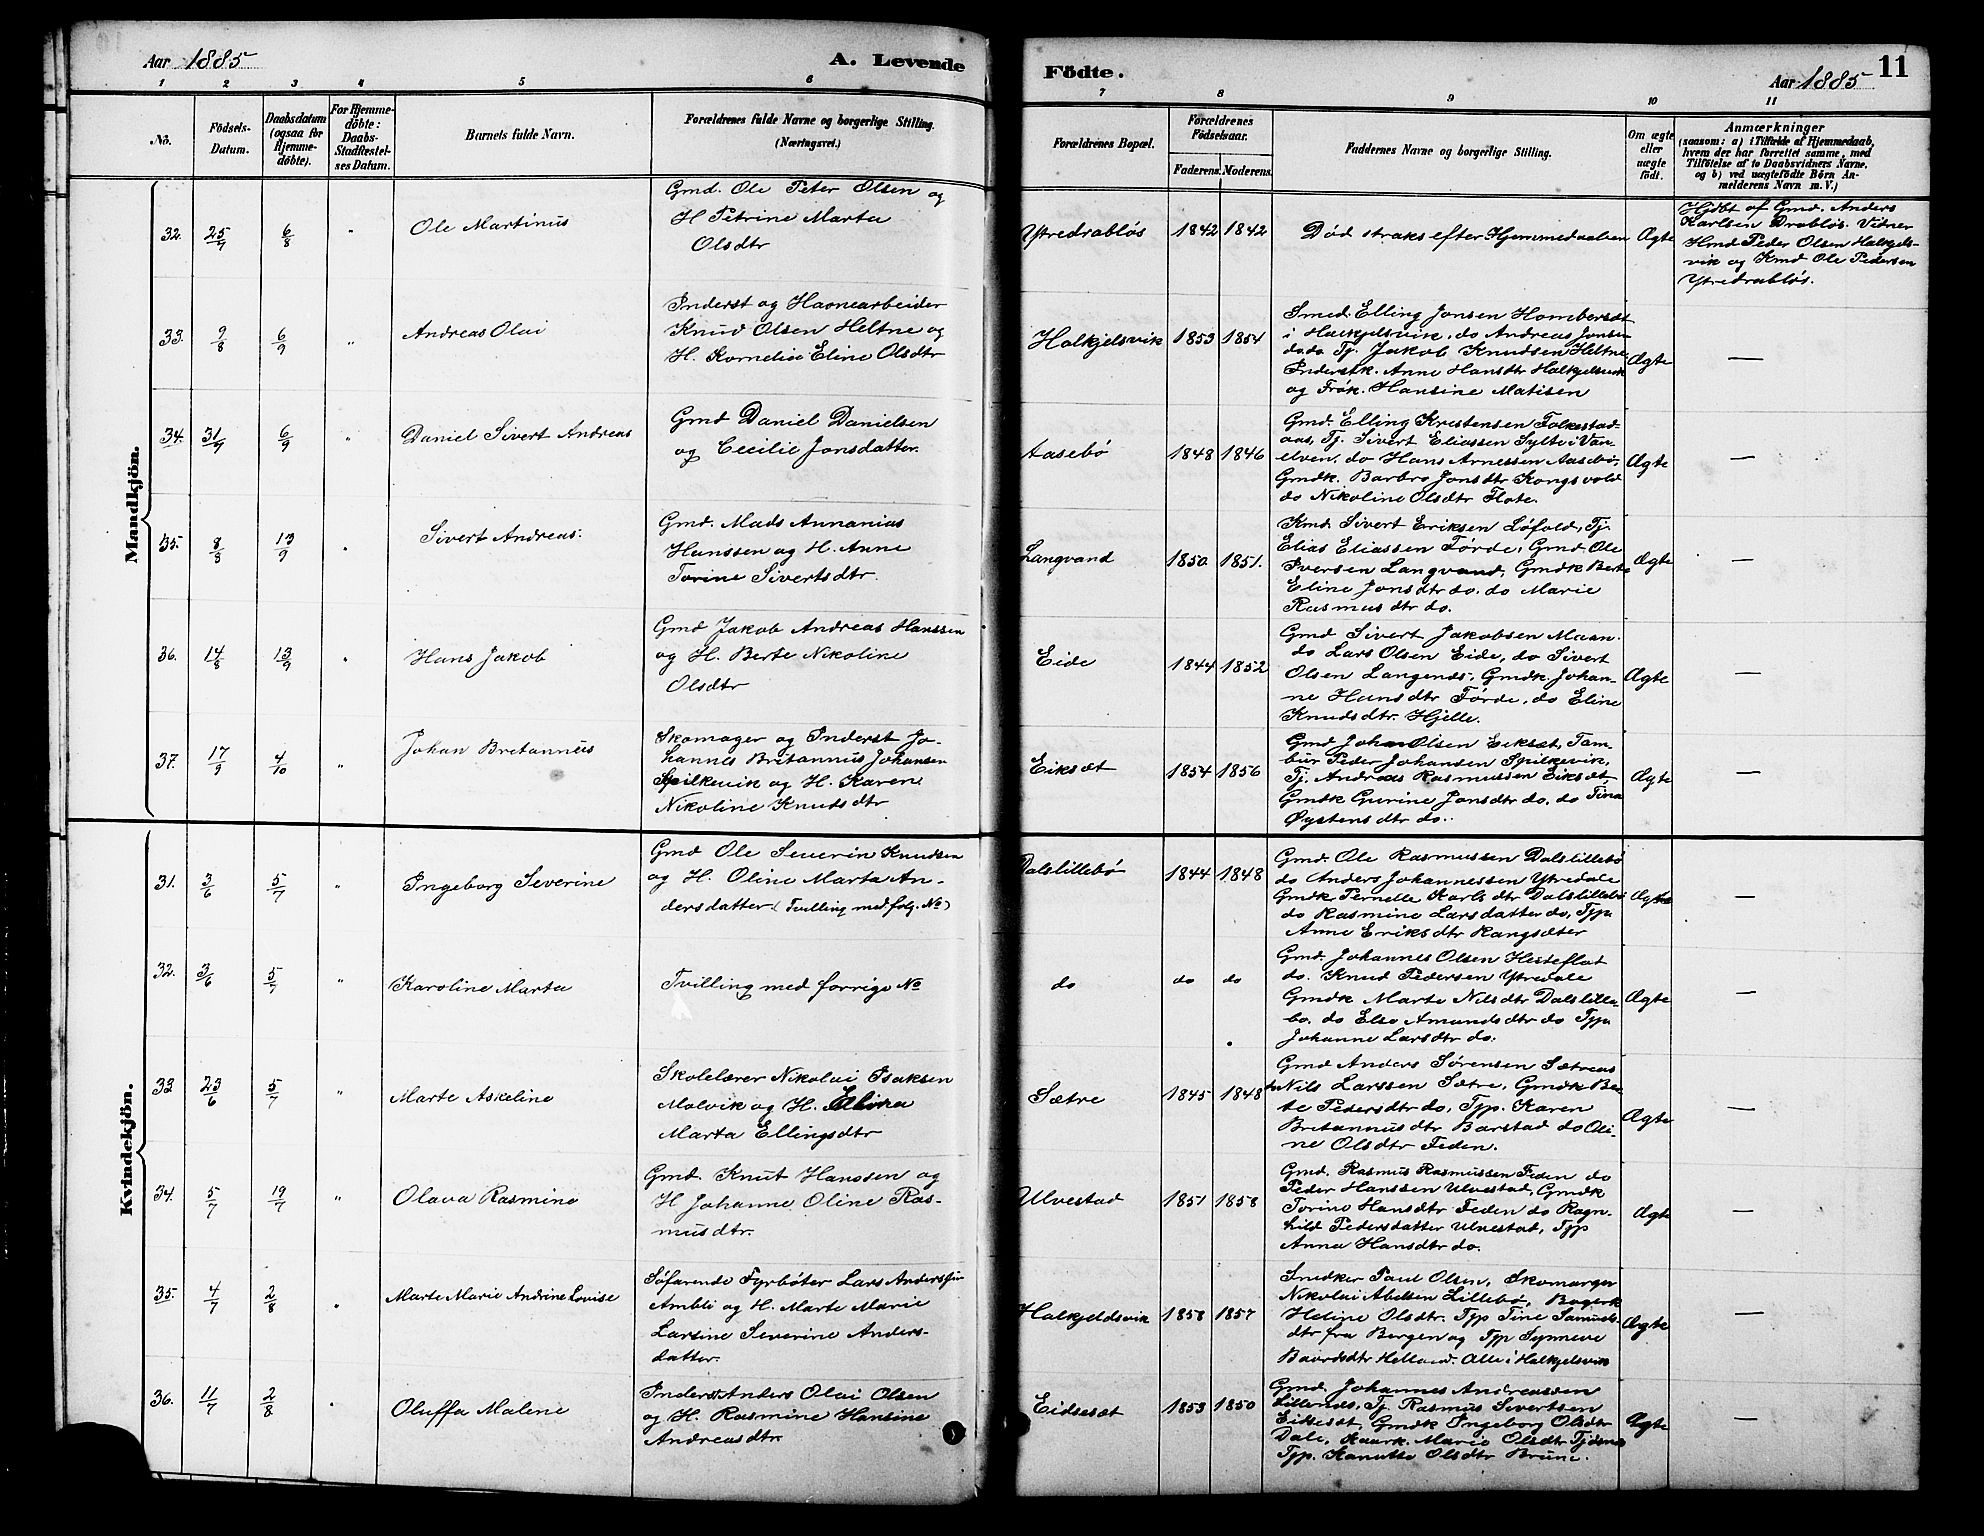 Aar 1885
A. Levende
Födte.
Aar 1885
11
1 2 3 4 5 6 7 8 9 10 11
No.
Födsels-
Datum.
Daabsdatum
(ogsaa for
Hjemme-
döbte).
For Hjemme-
döbte:
Daabs-
Stadfæstel-
ses Datum.
Barnets fulde Navn.
Forældrenes fulde Navne og borgerlige Stilling.
(Næringsvei.)
Forældrenes Bopæl.
Forældrenes
Födselsaar.
Faderens. Moderens.
Faddernes Navne og borgerlige Stilling.
Om ægte
eller
uægte
födt.
Anmærkninger
(saasom: a) i Tilfælde af Hjemmedaab,
hvem der har forrettet samme, med
Tilföielse af to Daabsvidners Navne,
og b) ved uægtefödte Börn An-
melderens Navn m. V.)
Mandkjön.
32. 25/7 6/8 " Ole Martinus
Gmd. Ole Peter Olsen og
H Petrine Marta
Olsdtr
Ytredrabløs 1842 1842
Død straks efter Hjemmedaaben
Ægte
Hjdbt af Gmd. Anders
Karlsen Drabløs. Vidner
Hmd Peder Olsen Halkjels-
vik og Kmd Ole Pedersen
Ytredrabløs.
33. 9/8 6/9 " Andreas Olai
Inderst og Havnearbeider
Knud Olsen Heltne og
H. Kornelie Eline Olsdtr
Halkjelsvik 1853 1854
Smed Elling Jonsen Hambersæt
i Halkjelsvik, do Andreas Jonsen
do do Tj. Jakob Knudsen Heltne,
Inderstk. Anne Hansdtr Halkjelsvik
og Frøk. Hansine Matisen
Ægte —
34. 31/7 6/9 " Daniel Sivert Andreas
Gmd Daniel Danielsen
og Cecilie Jonsdatter.
Aasebø 1848 1846
Gmd. Elling Kristensen Folkestad-
aas, Tj. Sivert Eliassen Sylte i Van-
elven, do Hans Arnessen Aasebø,
Gmdk. Barbro Jonsdtr Kongsvold
do Nikoline Olsdtr Flote.
Ægte —
35. 8/8 13/9 " Sivert Andreas.
Gmd. Mads Annanias
Hanssen og H. Anne
Torine Sivertsdtr.
Langvand 1850. 1851.
Kmd Sivert Eriksen Løfold, Tj.
Elias Eliassen Førde, Gmd Ole
Iversen Langvand, Gmdk Berte
Eline Jonsdtr do. do Marie
Rasmusdtr do.
Ægte —
36. 14/8 13/9 " Hans Jakob
Gmd Jakob Andreas Hanssen
og H. Berte Nikoline
Olsdtr
Eide 1844 1852
Gmd Sivert Jakobsen Maan.
do Lars Olsen Eide, do Sivert
Olsen Langenes, Gmdk Johan-
ne Hansdtr Førde, do Eline
Knudsdtr. Hjelle.
Ægte —
37. 17/9 4/10 " Johan Britannus
Skomager og Inderst Jo-
hannes Britannus Johansen
Spilkevik og H. Karen
Nikoline Knudsdtr
Eiksæt 1854 1856
Gmd Johan Olsen Eiksæt, Tam-
bur Peder Johansen Spilkevik,
Tj. Andreas Rasmussen Eiksæt
Gmdk Gurine Jonsdtr do. do Tina
Øystensdtr do.
Ægte —
Kvindekjön.
31. 3/6 5/7 " Ingeborg Severine
Gmd Ole Severin Knudsen
og H. Oline Marta An-
dersdatter (Tvilling med følg. No)
Dalslillebø 1844 1848
Gmd. Ole Rasmussen Dalslillebø
do Anders Johannessen Ytredale
Gmdk Pernelle Karlsdtr Dalslillebø
do Rasmine Larsdatter do, Typ.
Anne Eriksdtr Rangsæter
Ægte —
32. 3/6 5/7 " Karoline Marta
Tvilling med forrige No
do do do
Gmd. Johannes Olsen Hesteflot
do. Knud Pedersen Ytredale
Gmdk Marte Nilsdtr Dalslille-
bø. do Else Amundsdtr do Typ.
Johanne Larsdtr do.
Ægte —
33 23/6 5/7 " Marte Askeline
Skolelærer Nikolai Isaksen
Molvik og H. Elina
Marta Ellingsdtr
Sætre 1845 1848
Gmd Anders Sørensen Sætreas
do Nils Larssen Sætre, Gmdk Be-
te Pedersdtr do, Typ. Karen
Britannusdtr Barstad do Oli-
ne Olsdtr Feden.
Ægte —
34. 5/7 19/7 " Olava Rasmine
Gmd. Knut Hanssen og
H Johanne Oline Ras-
musdtr.
Ulvestad 1851 1858
Gmd. Rasmus Rasmussen Feden do
Peder Hanssen Ulvestad, Gmdk
Torine Hansdtr Feden do Ragn-
hild Pedersdatter Ulvestad, Typ
Anna Hansdtr do.
Ægte —
35. 4/7 2/8 " Marte Marie Andrine Lovise
Søfarende Fyrbøter Lars Anderssen
Ambli og H. Marte Marie
Larsine Severine Anders-
datter.
Halkjeldsvik 1858 1857
Snedker Paul Olsen, Skomager
Nikolai Abelsen Lillebø, Bagerk
Heline Olsdtr. Typ Tine Samuels-
dtr fra Bergen og Typ Synneve
Baardsdtr Helland. Alle i Halkjelsvik
Ægte —
36. 11/7 2/8 " Oluffa Malene
Inderst Anders Olai Olsen
og H. Rasmine Hansine
Andreasdtr.
Eidsesæt 1853 1850
Gmd. Johannes Andreassen
Lillenes, Tj. Rasmus Sivertsen
Eikesæt, Gmdk Ingeborg Olsdtr
Dale, Kaark. Marie Olsdtr
Typ. Kanutte Olsdtr Brune.
Ægte —